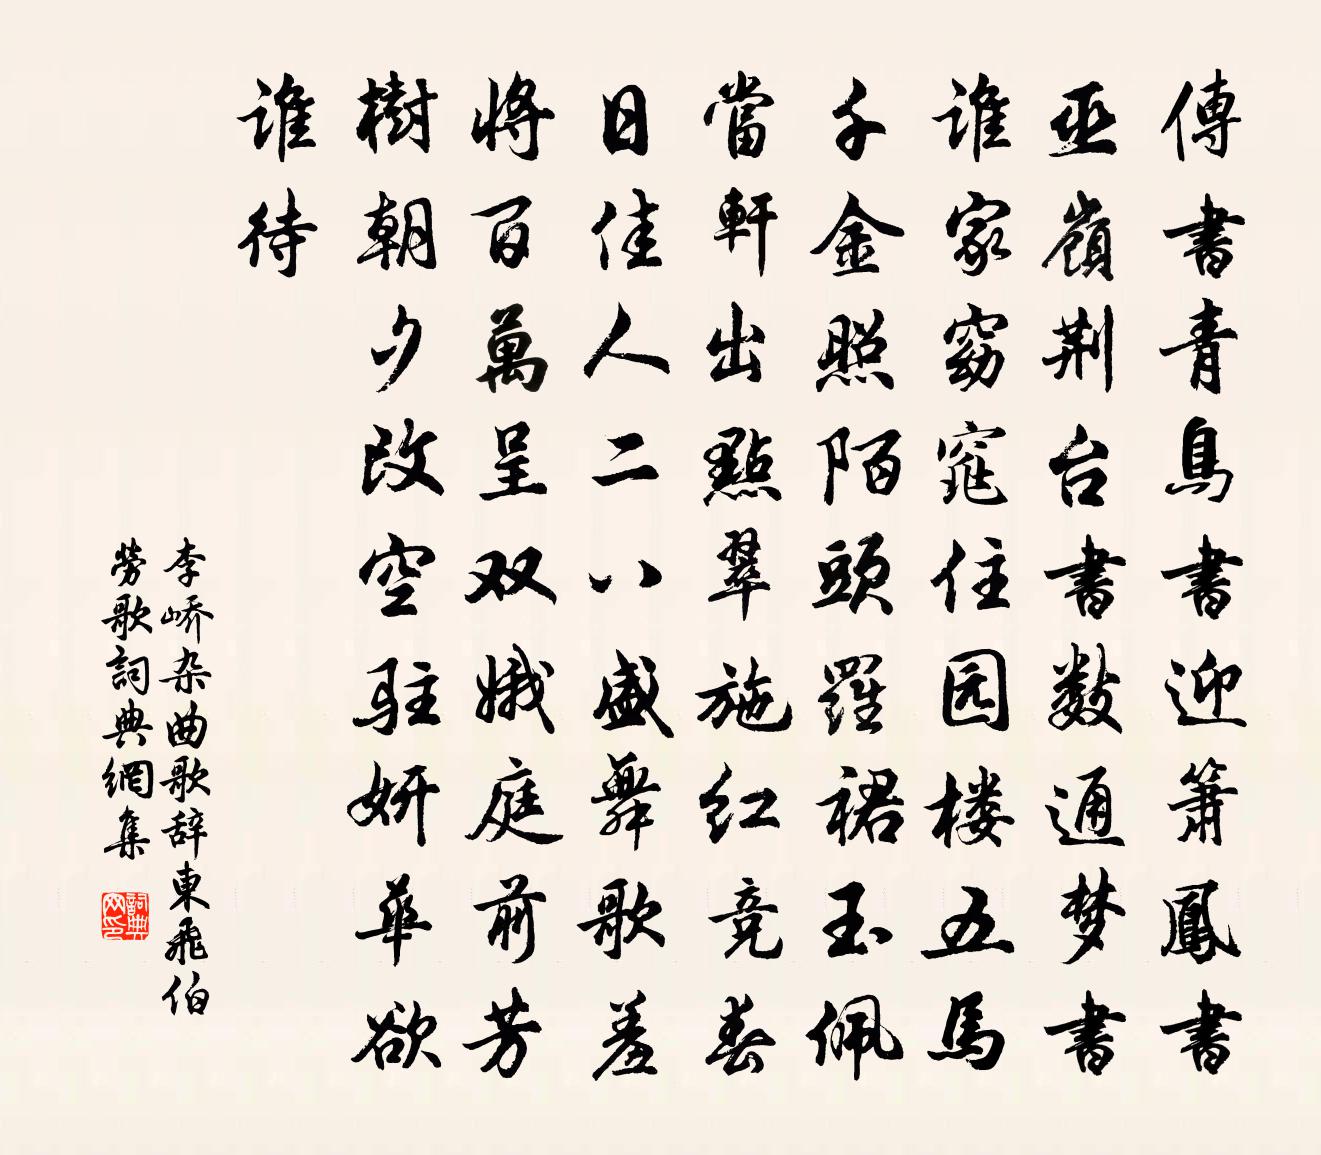 傳書青鳥書迎簫鳳書
巫嶺荆台書数通梦書
谁家窈窕住园楼五馬
千金照陌頭羅裙玉佩
當軒出點翠施红竞春
日佳人二八盛舞歌羞
將百萬呈双娥庭前芳
樹朝夕改空驻妍華欲
谁待
李峤杂曲歌辞東飛伯
勞歌詞典網集
詞典网印